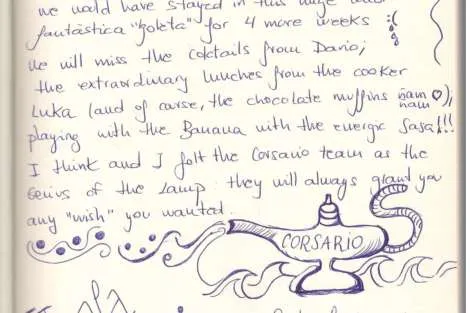 we would have stayed in this huge and
fantástica "goleta" for 4 more weeks :(
We will miss the coktails from Dario,
the extraordinary lunches from the cooker
Luka (and of curse, the chocolate muffins ñam ñam ♡),
playing with the Banana with the energic Sasa!!!
I think and I felt the Corsario team as the
Genius of the Lamp: they will always grand you
any "wish" you wanted.
CORSARIO